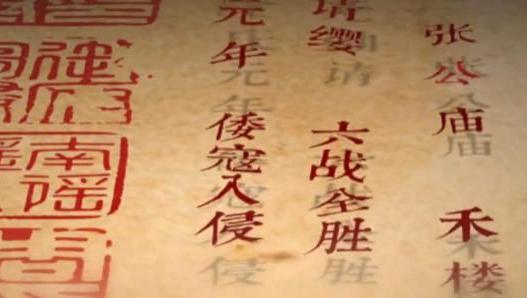 张公庙 禾楼
请缨 六战全胜
元年 倭寇入侵
南瑶